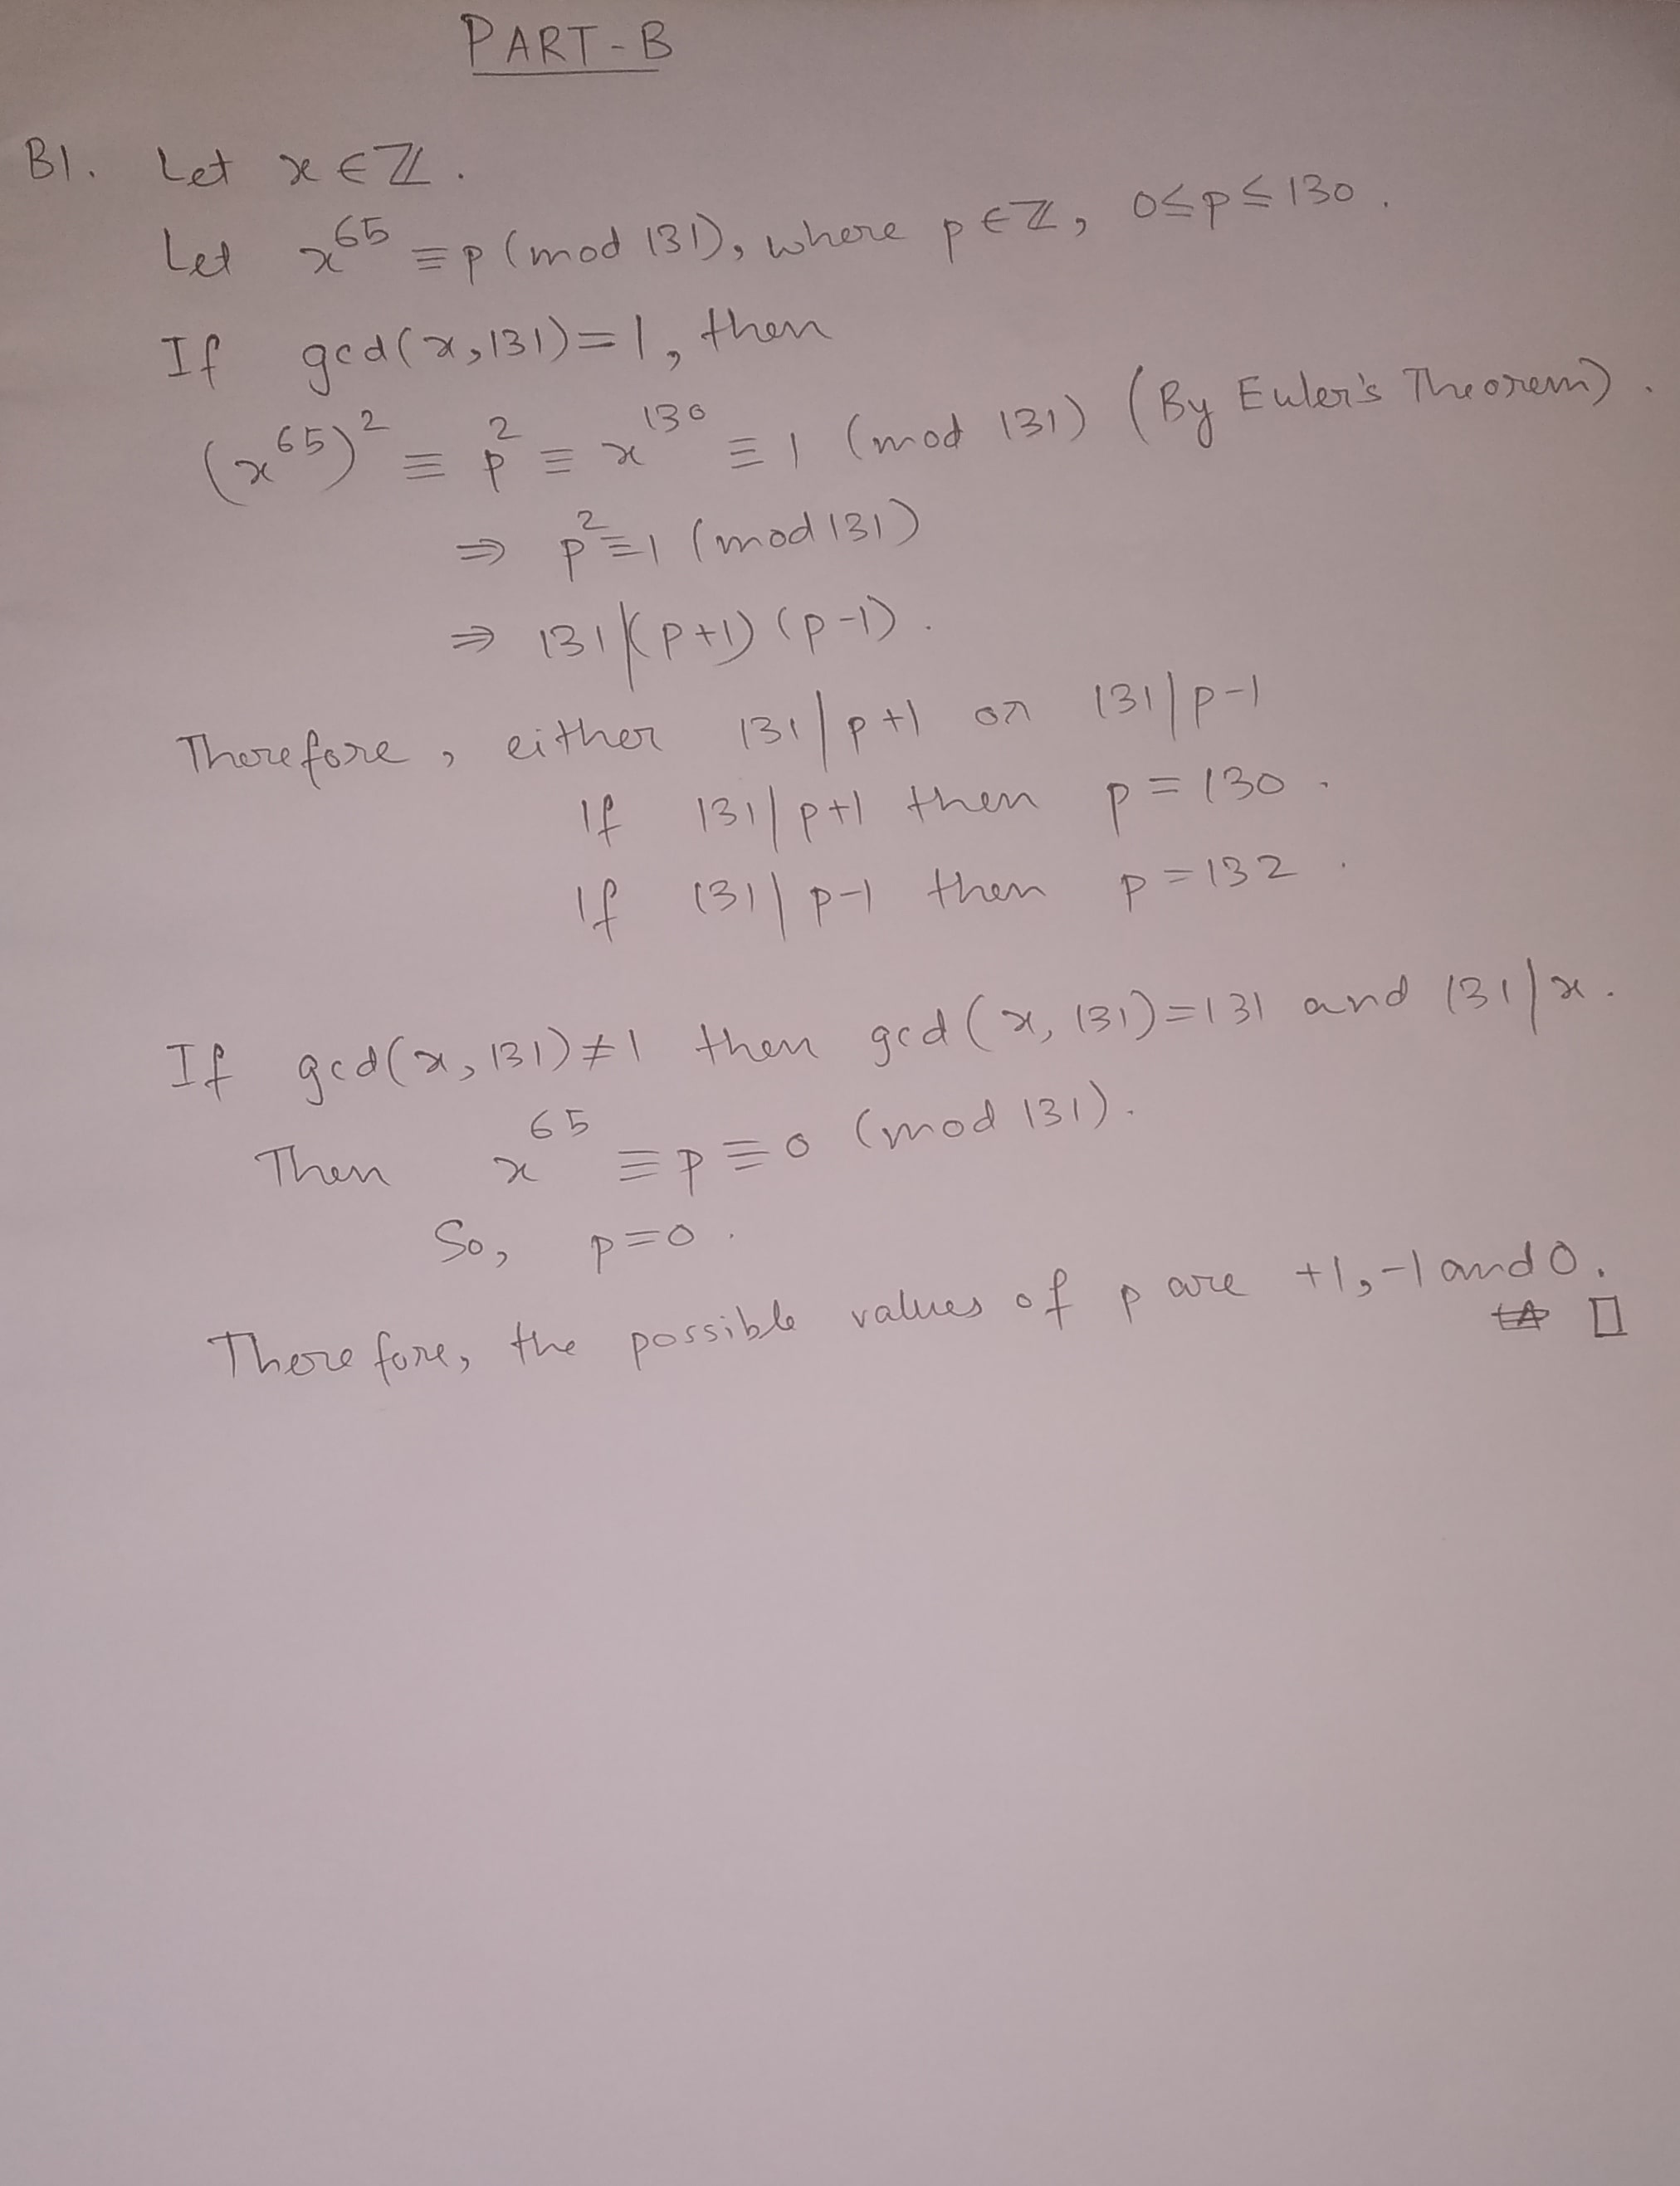 PART-B
B1. Let x ∈ ℤ.
Let x^65 ≡ p (mod 131), where p ∈ ℤ, 0 ≤ p ≤ 130.
If gcd(x, 131) = 1, then
(x^65)^2 ≡ p^2 ≡ x^130 ≡ 1 (mod 131) (By Euler's Theorem).
⇒ p^2 ≡ 1 (mod 131)
⇒ 131 | (p+1) (p-1).
Therefore, either 131 | p+1 or 131 | p-1
If 131 | p+1 then p = 130.
If 131 | p-1 then p = 132.
If gcd(x, 131) ≠ 1 then gcd(x, 131) = 131 and 131 | x.
Then x^65 ≡ p ≡ 0 (mod 131).
So, p = 0.
Therefore, the possible values of p are +1, -1 and 0.
□